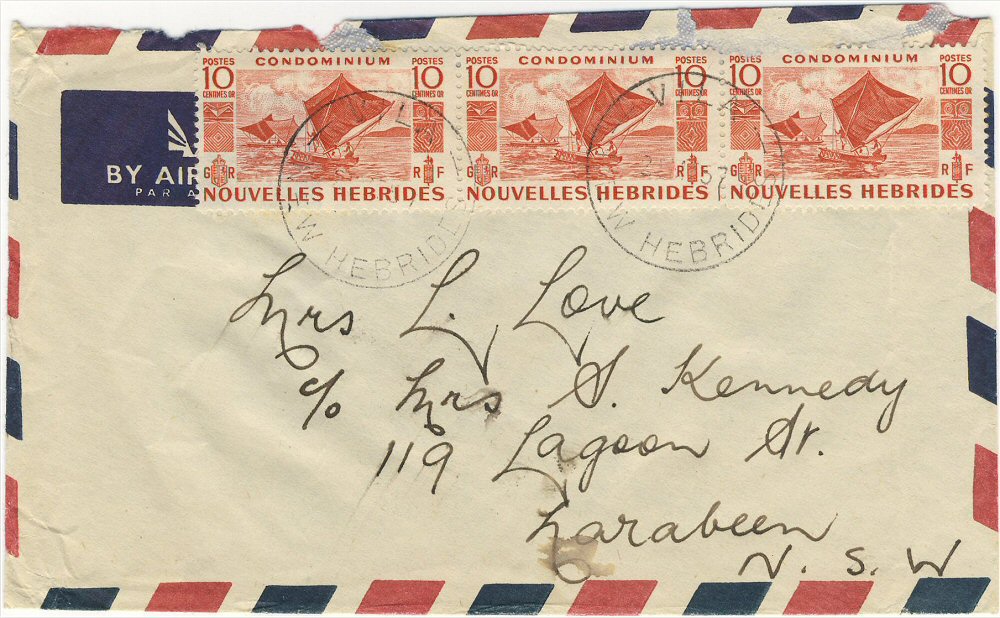 POSTES CONDOMINIUM POSTES
10 10
CENTIMES OR CENTIMES OR
G R R F
NOUVELLES HEBRIDES
POSTES CONDOMINIUM POSTES
10 10
CENTIMES OR CENTIMES OR
G R R F
NOUVELLES HEBRIDES
POSTES CONDOMINIUM POSTES
10 10
CENTIMES OR CENTIMES OR
G R R F
NOUVELLES HEBRIDES
BY AIR
PAR A
HEBRIDE
HEBRIDE
Mrs L. Love
c/o Mrs S. Kennedy
119 Lagoon St.
Narabeen
N. S. W